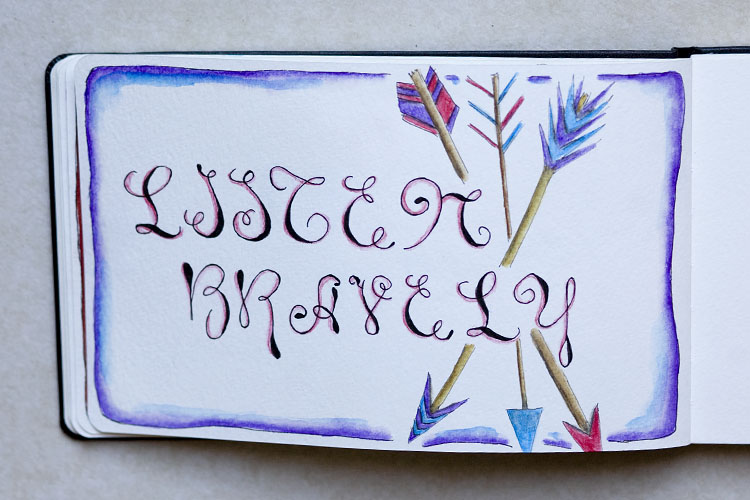 LISTEN
BRAVELY